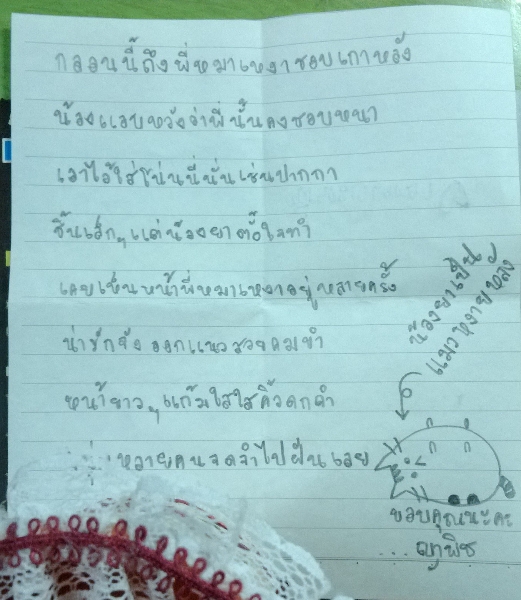 กลอนนี้ถึงพี่หมาเหงาชอบเกาหลัง
น้องแอบหวังว่าพี่นั้นคงชอบหนา
เอาไว้ใส่โน่นนี่นั่นเช่นปากกา
ชิ้นเล็กๆแต่น้องยาตั้งใจทำ
เคยเห็นหน้าพี่หมาเหงาอยู่หลายครั้ง
น่ารักจัง ออกแนวสวยคมขำ
หน้ายาวๆแก้มใสใสคิ้วดกดำ
หลายคนจดจำไปฝันเลย
น้องยาเป็น
แมวหงายหลัง
ขอบคุณนะคะ
...